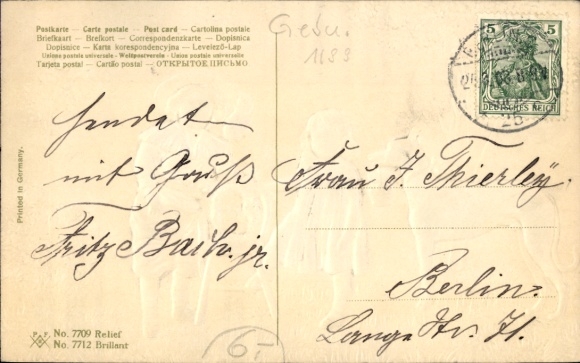 Postkarte – Carte postale – Post card – Cartolina postale
Briefkaart – Brefkort – Correspondenzkarte – Dopisnica
Dopisnice – Karta korespondencyjna – Levelező-Lap
Union postale universelle – Weltpostverein – Unione postale universale
Tarjeta postal – Cartão postal – ОТКРЫТОЕ ПИСЬМО
1183
5 5
DEUTSCHES REICH
25
Printed in Germany.
Sendet
mit Gruß
Fritz jr.
Frau J. Thierley
Berlin.
Lange Str. 71.
P. F.
No. 7709 Relief
No. 7712 Brillant
6-